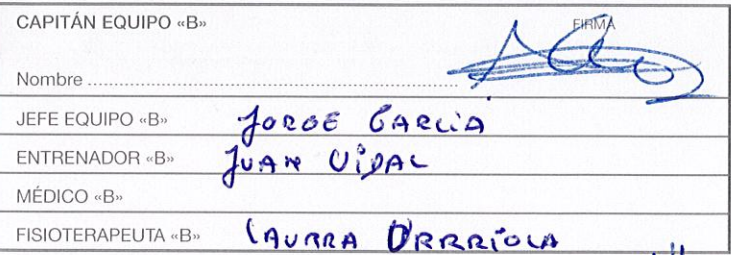 CAPITÁN EQUIPO «B» FIRMA
Nombre
JEFE EQUIPO «B» JORGE GARCÍA
ENTRENADOR «B» JUAN VIDAL
MÉDICO «B»
FISIOTERAPEUTA «B» LAURRA URRRÍOLA